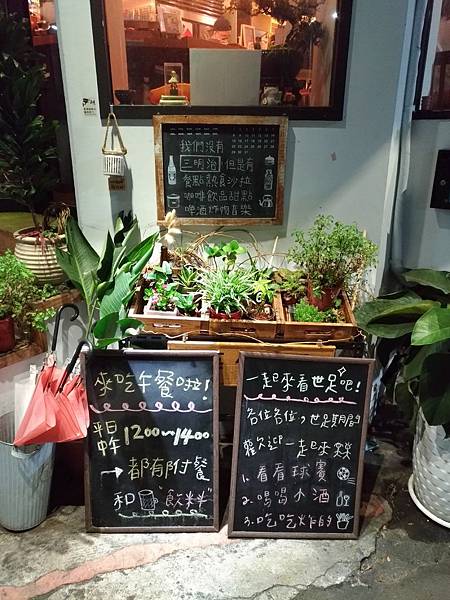 我們沒有
三明治 但是有
餐點熱食沙拉
咖啡飲品甜點
啤酒炸物音樂
來吃午餐啦！
平日
中午 12:00～14:00
→ 都有附餐
和 飲料
一起來看世足吧！
各位各位，世足期間
歡迎一起來
1. 看看球賽
2. 喝喝小酒
3. 吃吃炸的